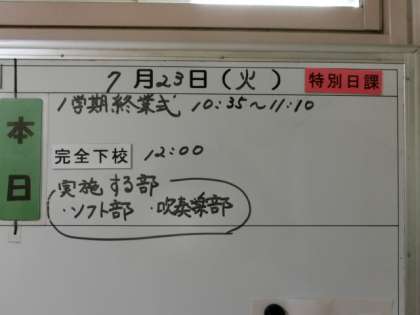 7月23日(火) 特別日課
本日
1学期終業式 10:35~11:10
完全下校 12:00
実施する部
・ソフト部 ・吹奏楽部